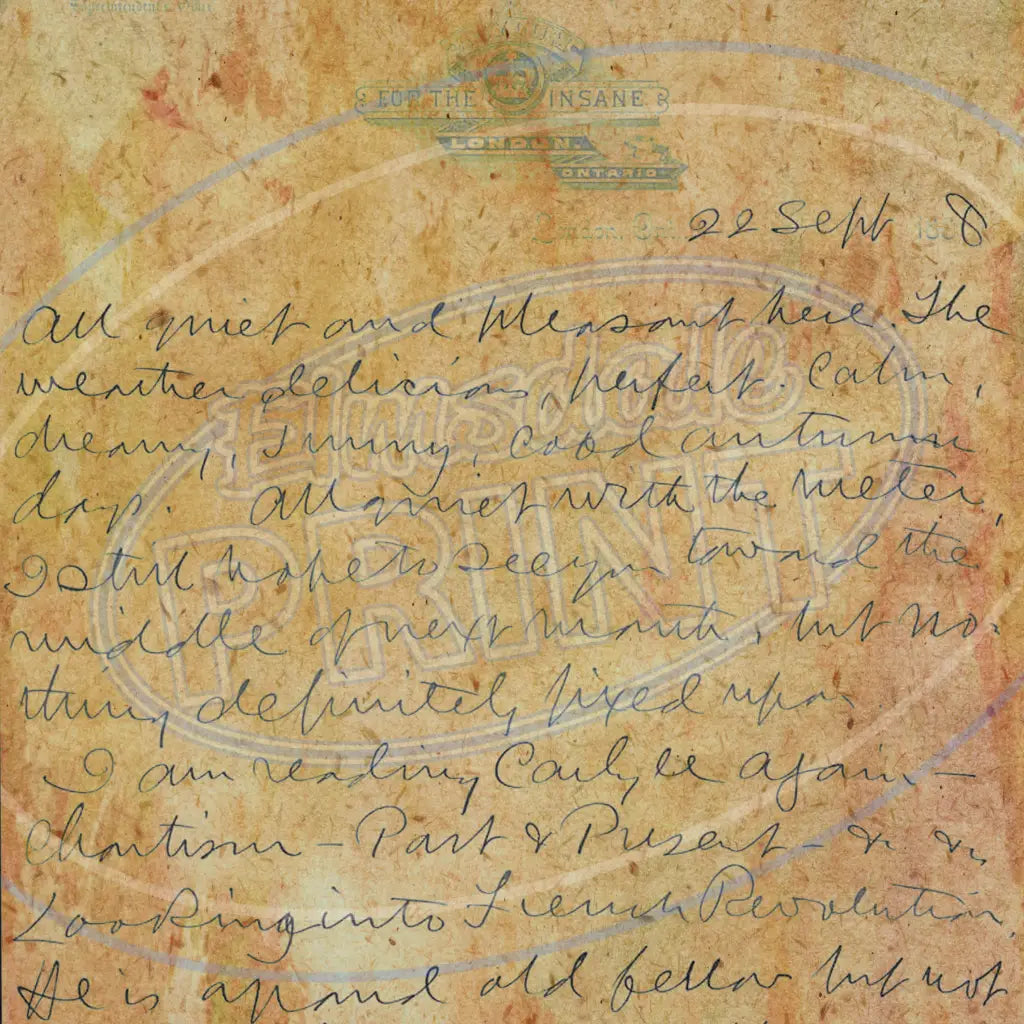 Superintendent's Office
FOR THE INSANE
LONDON.
ONTARIO
London, Ont. 22 Sept 1888
All quiet and pleasant here. The
weather delicious, perfect. Calm,
dreamy, sunny, cool autumn
days. All quiet with the meter,
I still hope to see you toward the
middle of next month, but no-
thing definitely fixed upon
I am reading Carlyle again —
Chartism — Past & Present — &c &c
Looking into French Revolution.
He is a grand old fellow but not
Elmsdale
PRINT